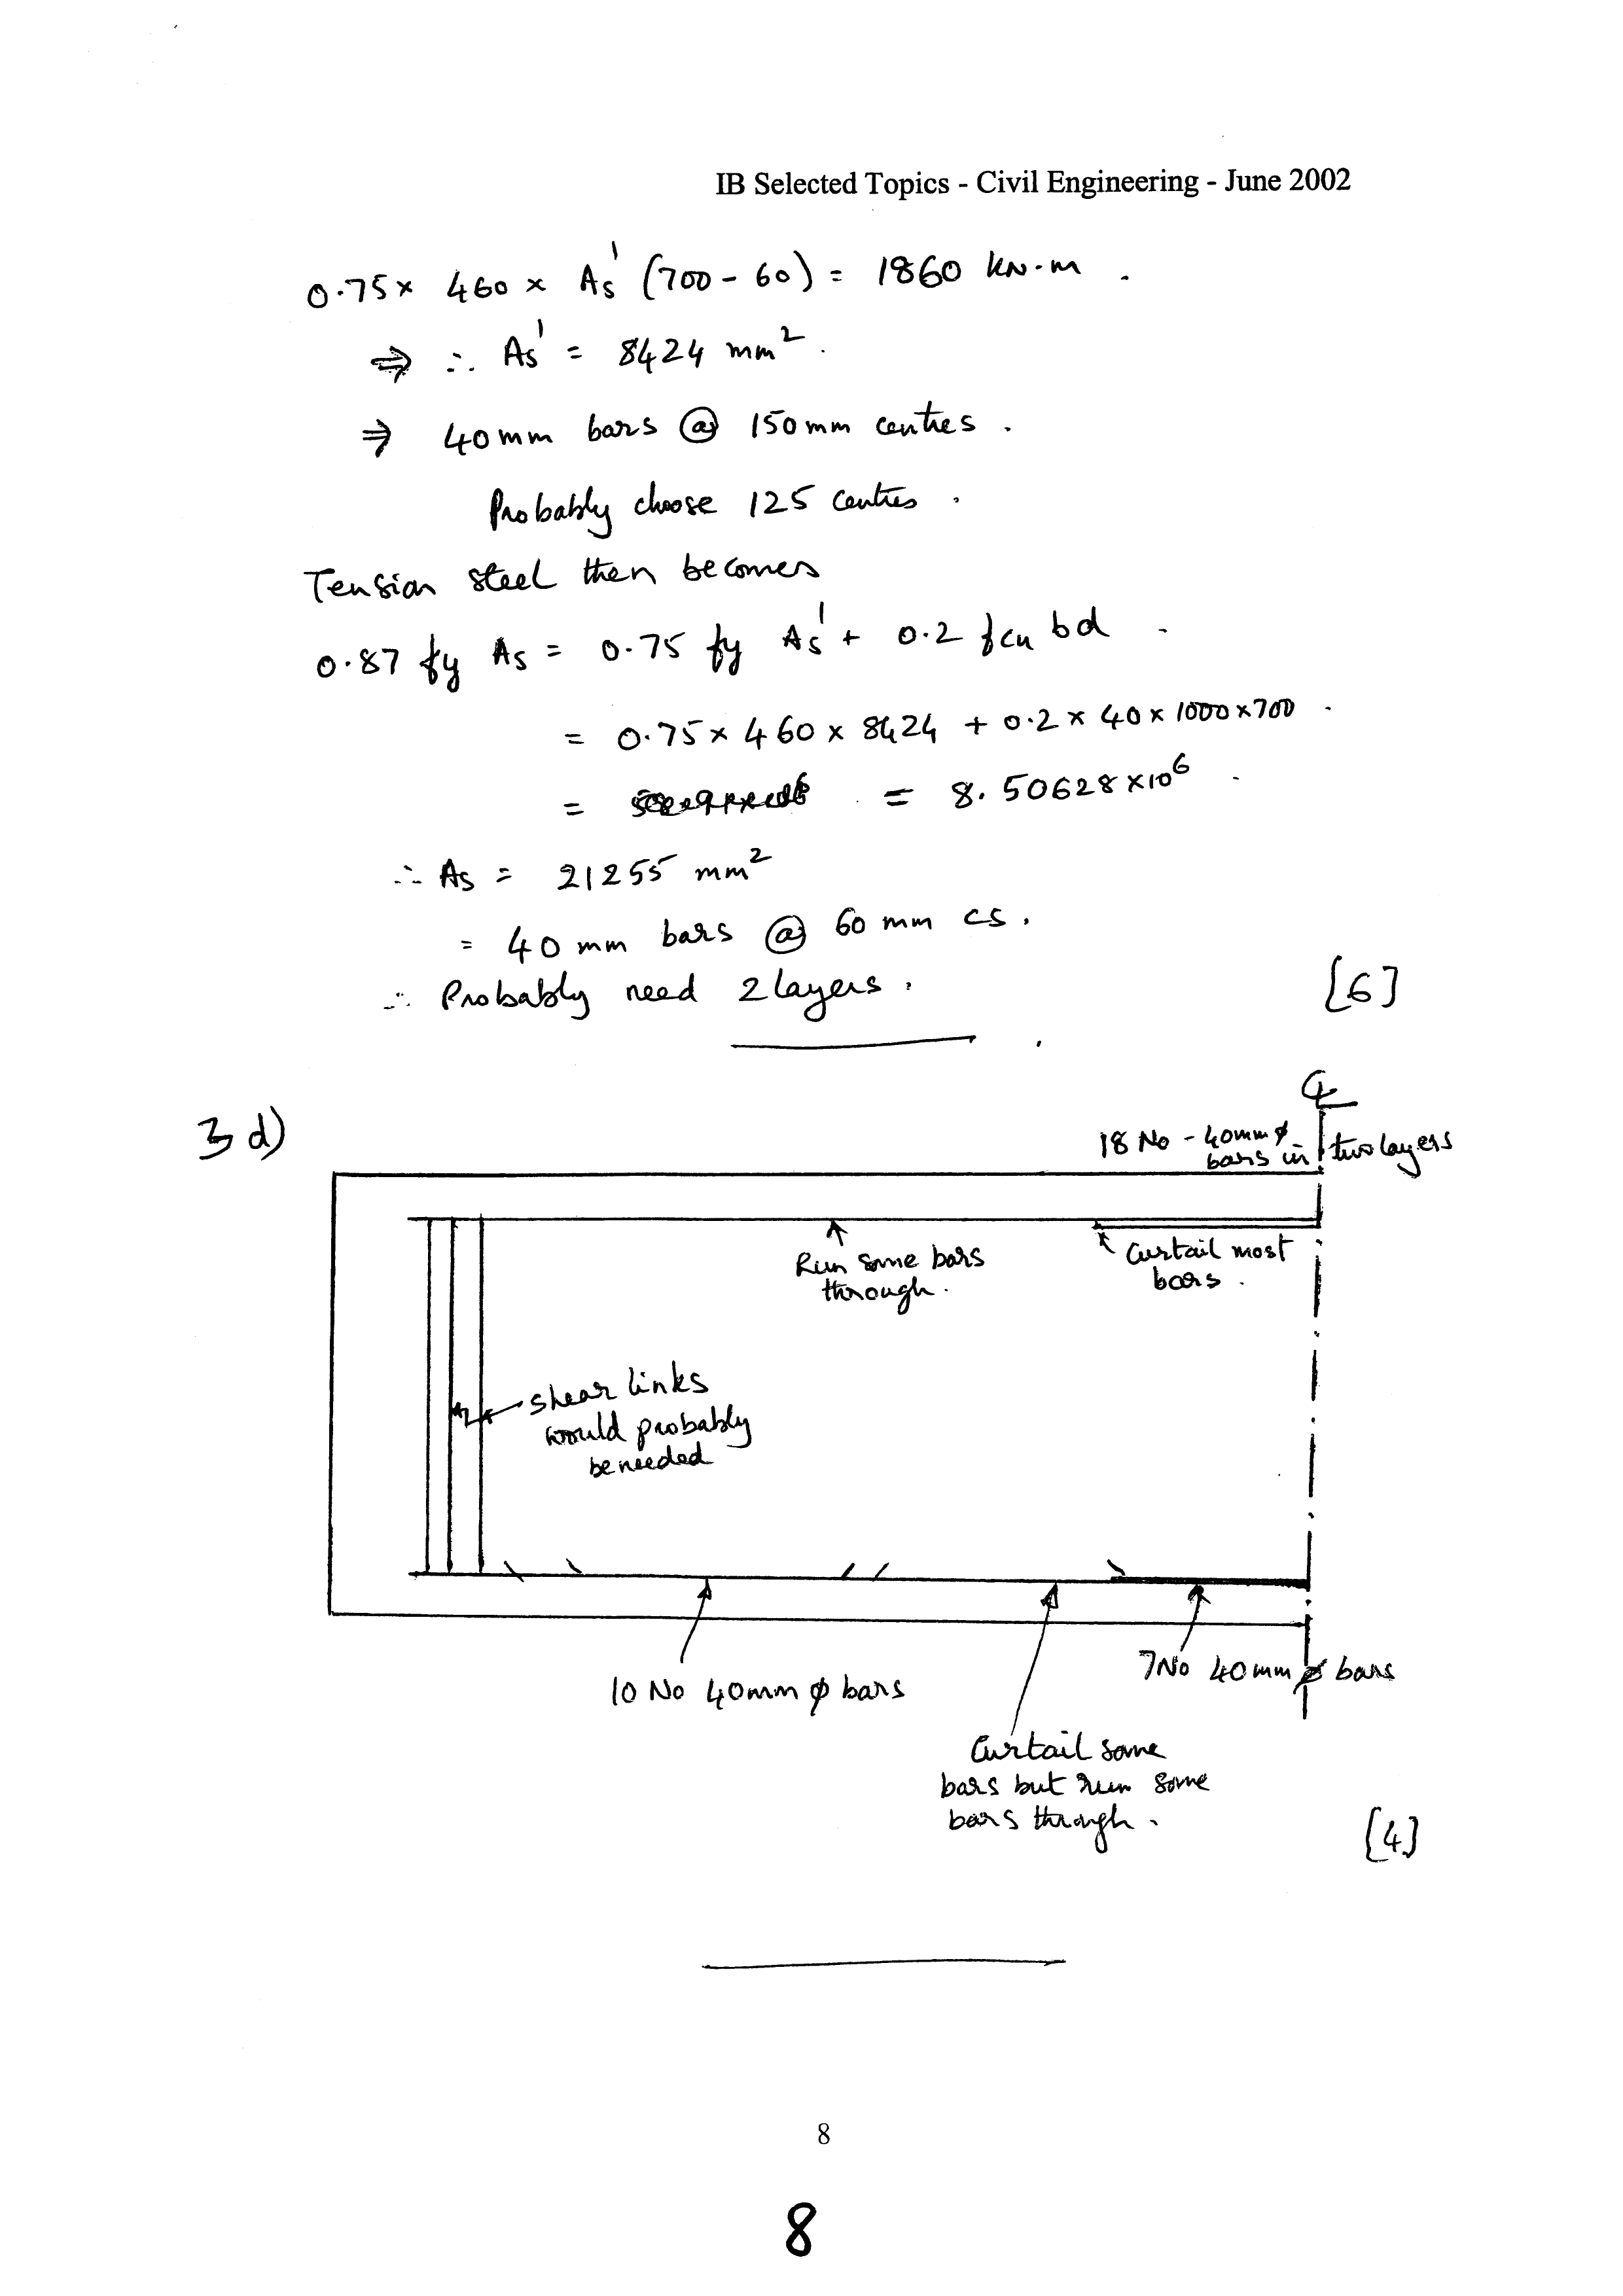 IB Selected Topics - Civil Engineering - June 2002
0.75 × 460 × As' (700 - 60) = 1860 kN.m .
⇒ ∴ As' = 8424 mm² .
⇒ 40mm bars @ 150mm centres .
Probably choose 125 centres .
Tension steel then becomes
0.87 fy As = 0.75 fy As' + 0.2 fcu bd .
= 0.75 × 460 × 8424 + 0.2 × 40 × 1000 × 700 .
= = 8.50628 × 10⁶ .
∴ As = 21255 mm²
= 40 mm bars @ 60 mm cs .
∴ Probably need 2 layers .
[6]
3 d)
18 No - 40mm ϕ
bars in two layers
Run some bars
through .
Curtail most
bars .
shear links
would probably
be needed
10 No 40mm ϕ bars
7 No 40mm ϕ bars
Curtail some
bars but run some
bars through .
[4]
8
8